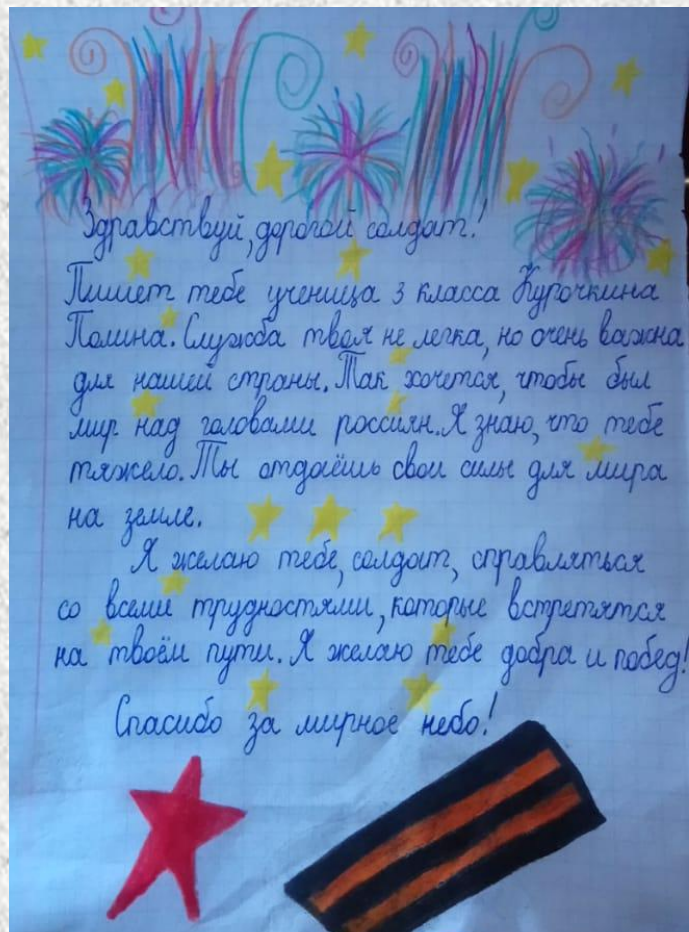 Здравствуй, дорогой солдат!
Пишет тебе ученица 3 класса Курочкина
Полина. Служба твоя не легка, но очень важна
для нашей страны. Так хочется, чтобы был
мир над головами россиян. Я знаю, что тебе
тяжело. Ты отдаёшь свои силы для мира
на земле.
Я желаю тебе, солдат, справляться
со всеми трудностями, которые встретятся
на твоём пути. Я желаю тебе добра и побед!
Спасибо за мирное небо!